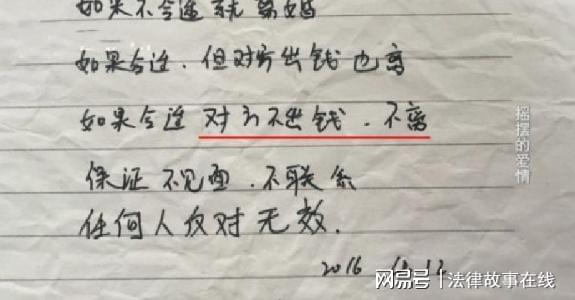 如果不合适就离婚
如果合适.但对方出钱也离
如果合适 对方不出钱.不离
保证 不见面.不联系
任何人反对无效.
2016 12.12
摇摆的爱情
网易号 | 法律故事在线